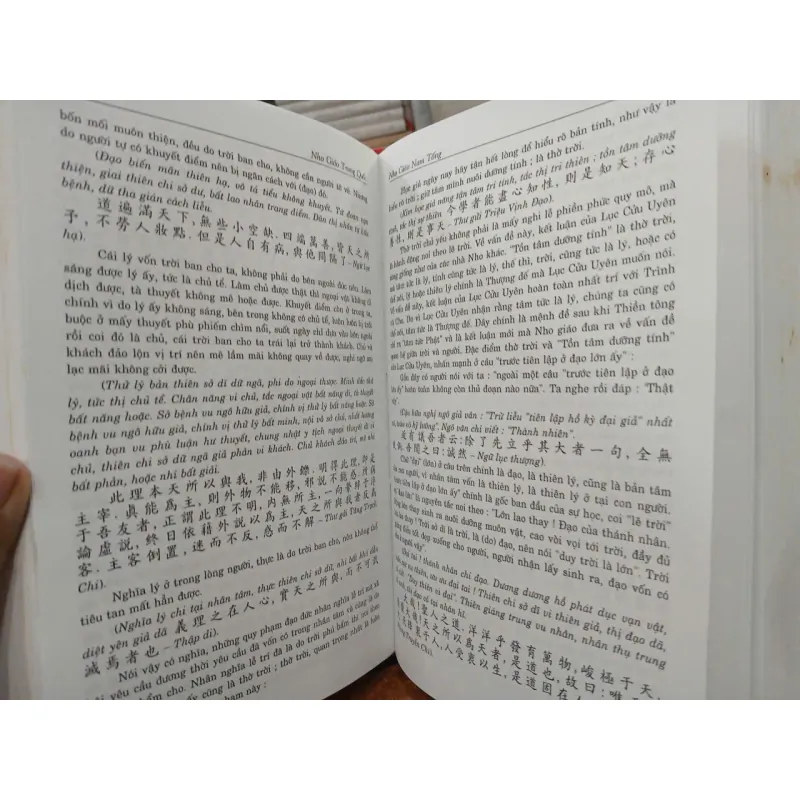 Nho Giáo Trung Quốc
bốn mối muôn thiện, đều do trời ban cho, không cần người tô vẽ. Nhưng
do người tự có khuyết điểm nên bị ngăn cách với (đạo) đó.
(Đạo biến mãn thiên hạ, vô tá tiểu không khuyết. Tứ đoan vạn
thiện, giai thiên chi sở dư, bất lao nhân trang điểm. Đãn thị nhân tự hữu
bệnh, dữ tha gián cách liễu.
道遍滿天下,無些小空缺.四端萬善,皆天之所
予,不勞人妝點.但是人自有病,與他間隔了 – Ngữ lục
hạ).
Cái lý vốn trời ban cho ta, không phải do bên ngoài đúc nên. Làm
sáng được lý ấy, tức là chủ tể. Làm chủ được thật thì ngoại vật không di
dịch được, tà thuyết không mê hoặc được. Khuyết điểm của ở trong ta,
chính vì do lý ấy không sáng, bên trong không có chủ tể, luôn luôn bị trói
buộc ở mấy thuyết phù phiếm chìm nổi, suốt ngày chỉ dựa vào bên ngoài
rồi coi đó là chủ, cái trời ban cho ta trái lại trở thành khách. Chủ và
khách đảo lộn vị trí nên mê lầm mãi không quay về được, nghi ngờ sai
lạc mãi không cởi được.
(Thử lý bản thiên sở dĩ dữ ngã, phi do ngoại thược. Minh đắc thử
lý, tức thị chủ tể. Chân năng vi chủ, tắc ngoại vật bất năng di, tà thuyết
bất năng hoặc. Sở bệnh vu ngô hữu giả, chính vị thử lý bất minh, nội vô sở chủ, nhất hướng
oanh bạn vu phù luận hư thuyết, chung nhật y tịch ngoại thuyết dĩ vi
chủ, thiên chi sở dữ ngã giả phản vi khách. Chủ khách đảo trí, mê nhi
bất phản, hoặc nhi bất giải.
此理本天所以與我,非由外鑠.明得此理,即是
主宰.真能爲主,則外物不能移,邪說不能惑.所病
于吾友者,正謂此理不明,內無所主,一向縈絆于浮
論虛說,終日依藉外說以爲主,天之所與我者反爲
客.主客倒置,迷而不反,惑而不解 – Thư gửi Tăng Trạch
Chi).
Nghĩa lý ở trong lòng người, thực là do trời ban cho, nên không thể
tiêu tan mất hẳn được.
(Nghĩa lý chi tại nhân tâm, thực thiên chi sở dữ, nhi bất khả dẫn
diệt yên giả dã 義理之在人心,實天之所與,而不可泯
滅焉者也 – Thập di).
Nói vậy có nghĩa, những quy phạm đạo đức nhân nghĩa lễ trí mà
yêu cầu đương thời yêu cầu đã vốn có trong nhân tâm và cũng là do
cho. Nhân nghĩa lễ trí đã là do trời phú bẩm thì
ấy cũng là thờ trời ; thờ trời, quan trọng nhất là
phạm này :
Nho Giáo Nam Tống
Học giả ngày nay hãy tận hết lòng để hiểu rõ bản tính, như vậy là
hiểu rõ trời ; giữ tâm mình nuôi dưỡng tính ; là thờ trời.
(Kim học giả năng tận tâm tri tính, tắc thị tri thiên ; tồn tâm dưỡng
tính, tắc thị sự thiên 今學者能盡心知性,則是知天;存心
養性,則是事天 – Thư gửi Triệu Vịnh Đạo).
Thờ trời chủ yếu không phải là mấy nghi lễ phiền phức quy mô, mà
là hành động noi theo lẽ trời. Về vấn đề này, kết luận của Lục Cửu Uyên
cũng giống như của các nhà Nho khác. "Tồn tâm dưỡng tính" là thờ trời,
tâm tức là lý, tính cũng tức là lý, thế thì, trời cũng tức là lý, hoặc có
thể nói, lý hoặc thiên lý chính là Thượng đế mà Lục Cửu Uyên muốn nói.
Về vấn đề này, kết luận của Lục Cửu Uyên hoàn toàn nhất trí với Trình
Chu. Do vì Lục Cửu Uyên nhận rằng tâm tức là lý, chúng ta cũng có
thể nói, tâm tức là Thượng đế. Đây chính là mệnh đề sau khi Thiền tông
nêu ra "tâm tức Phật" và là kết luận mới mà Nho giáo đưa ra về vấn đề
quan hệ giữa trời và người. Đặc điểm thờ trời và "Tồn tâm dưỡng tính"
của Lục Cửu Uyên, nhấn mạnh ở câu "trước tiên lập ở đạo lớn ấy" :
Gần đây có người nói với ta : "ngoài một câu "trước tiên lập ở đạo
lớn ấy" hoàn toàn không còn thủ đoạn nào nữa". Ta nghe rồi đáp : "Thật
vậy".
(Cận hữu nghị ngô giả vân : "Trừ liễu "tiên lập hồ kỳ đại giả" nhất
cú, toàn vô kỹ lưỡng". Ngô văn chi viết : "Thành nhiên".
近有議吾者云:除了先立乎其大者一句,全無
伎倆.吾聞之曰:誠然 – Ngữ lục thượng).
Chữ "đại" (lớn) ở câu trên chính là đạo, là thiên lý, cũng là bản tâm
con người, vì nhân tâm vốn là thiên lý, là thiên lý ở tại con người.
"Trước tiên lập ở đạo lớn ấy" chính là gốc ban đầu của sự học, coi "lẽ trời"
là nguyên tắc nói theo : "Lớn lao thay ! Đạo của thánh nhân.
sinh ra nuôi dưỡng muôn vật, cao vời vọi tới trời, đầy đủ
thay ! Trời sở dĩ là trời, là (do) đạo, nên nói "duy trời là lớn". Trời
đem điều tốt đẹp xuống cho người, người nhận lấy sinh ra, đạo vốn có
(Đại tai ! thánh nhân chi đạo. Dương dương hồ phát dục vạn vật,
ưu ưu đại tai ! Thiên chi sở dĩ vi thiên giả, thị đạo dã,
"Duy thiên vi đại". Thiên giáng trung vu nhân, nhân thụ trung
dĩ sinh, thị đạo cố tại nhân hĩ.
大哉!聖人之道.洋洋乎發育萬物,峻極于天,
天之所以爲天者,是道也,故曰:唯
降衷于人,人受衷以生,是道固在人